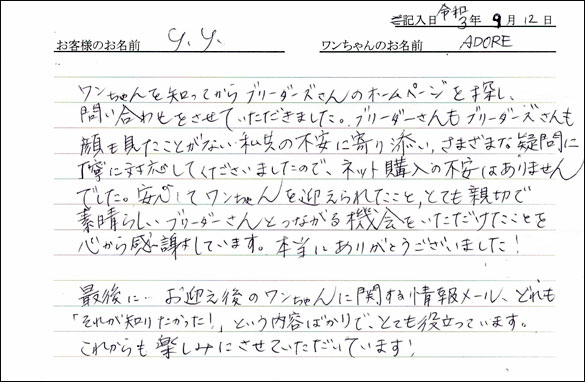 記入日 令和3年 9月 12日
お客様のお名前 y.y. ワンちゃんのお名前 ADORE
ワンちゃんを知ってからブリーダーズさんのホームページを探し、
問い合わせをさせていただきました。ブリーダーさんもブリーダーズさんも
顔も見たことがない私共の不安に寄り添い、さまざまな疑問に
丁寧に対応してくださいましたので、ネット購入の不安はありません
でした。安心してワンちゃんを迎えられたこと、とても親切で
素晴らしいブリーダーさんとつながる機会をいただけたことを
心から感謝しています。本当にありがとうございました！
最後に… お迎え後のワンちゃんに関する情報メール、どれも
「それが知りたかった！」という内容ばかりで、とても役立っています。
これからも楽しみにさせていただいています！